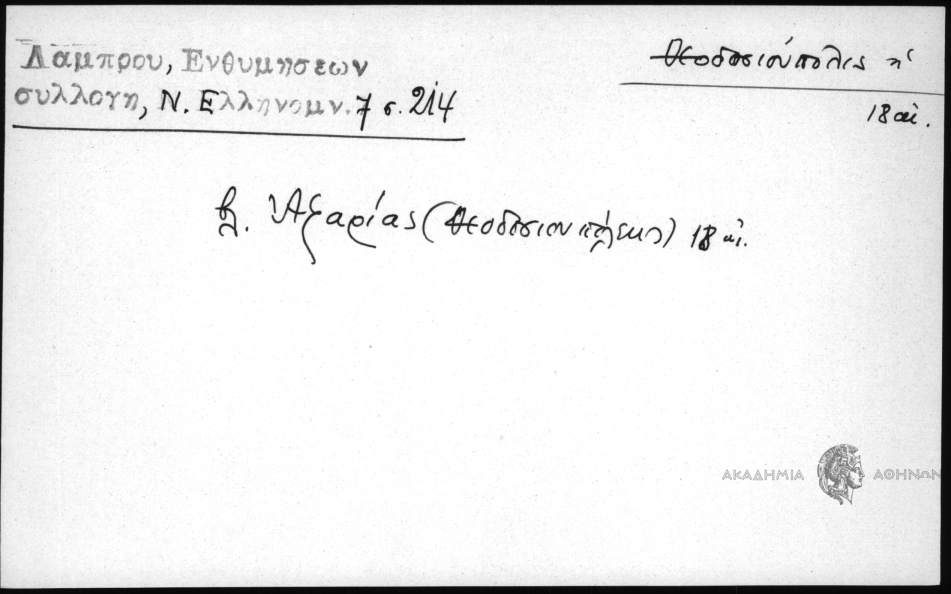 Λαμπρου, Ενθυμησεων
συλλογη, Ν. Ελληνομν. 7 σ. 214
Θεοδοσιούπολις ἡ
18 αἰ.
βλ. Ἀζαρίας (Θεοδοσιουπόλεως) 18 αἰ.
ΑΚΑΔΗΜΙΑ ΑΘΗΝΩΝ